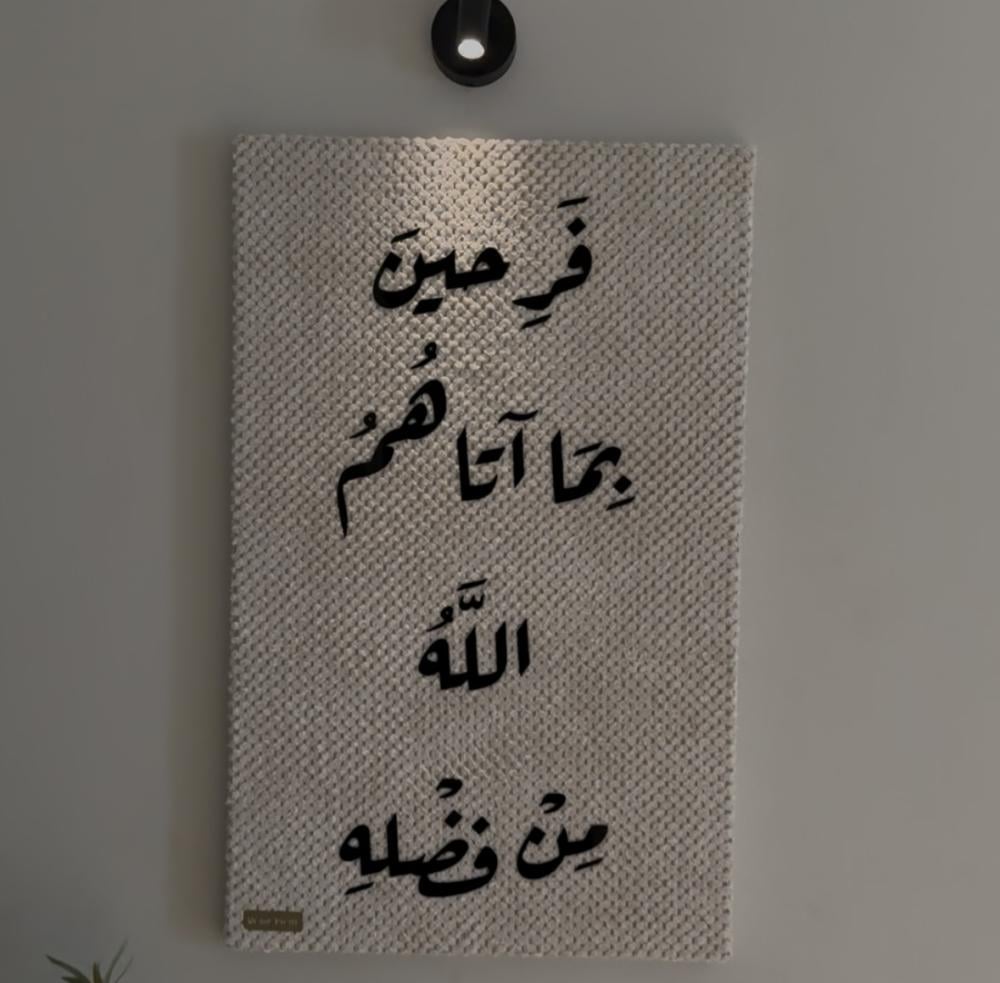 فَرِحينَ
بِمَا آتاهُمُ
اللَّهُ
مِنْ فضْلهِ